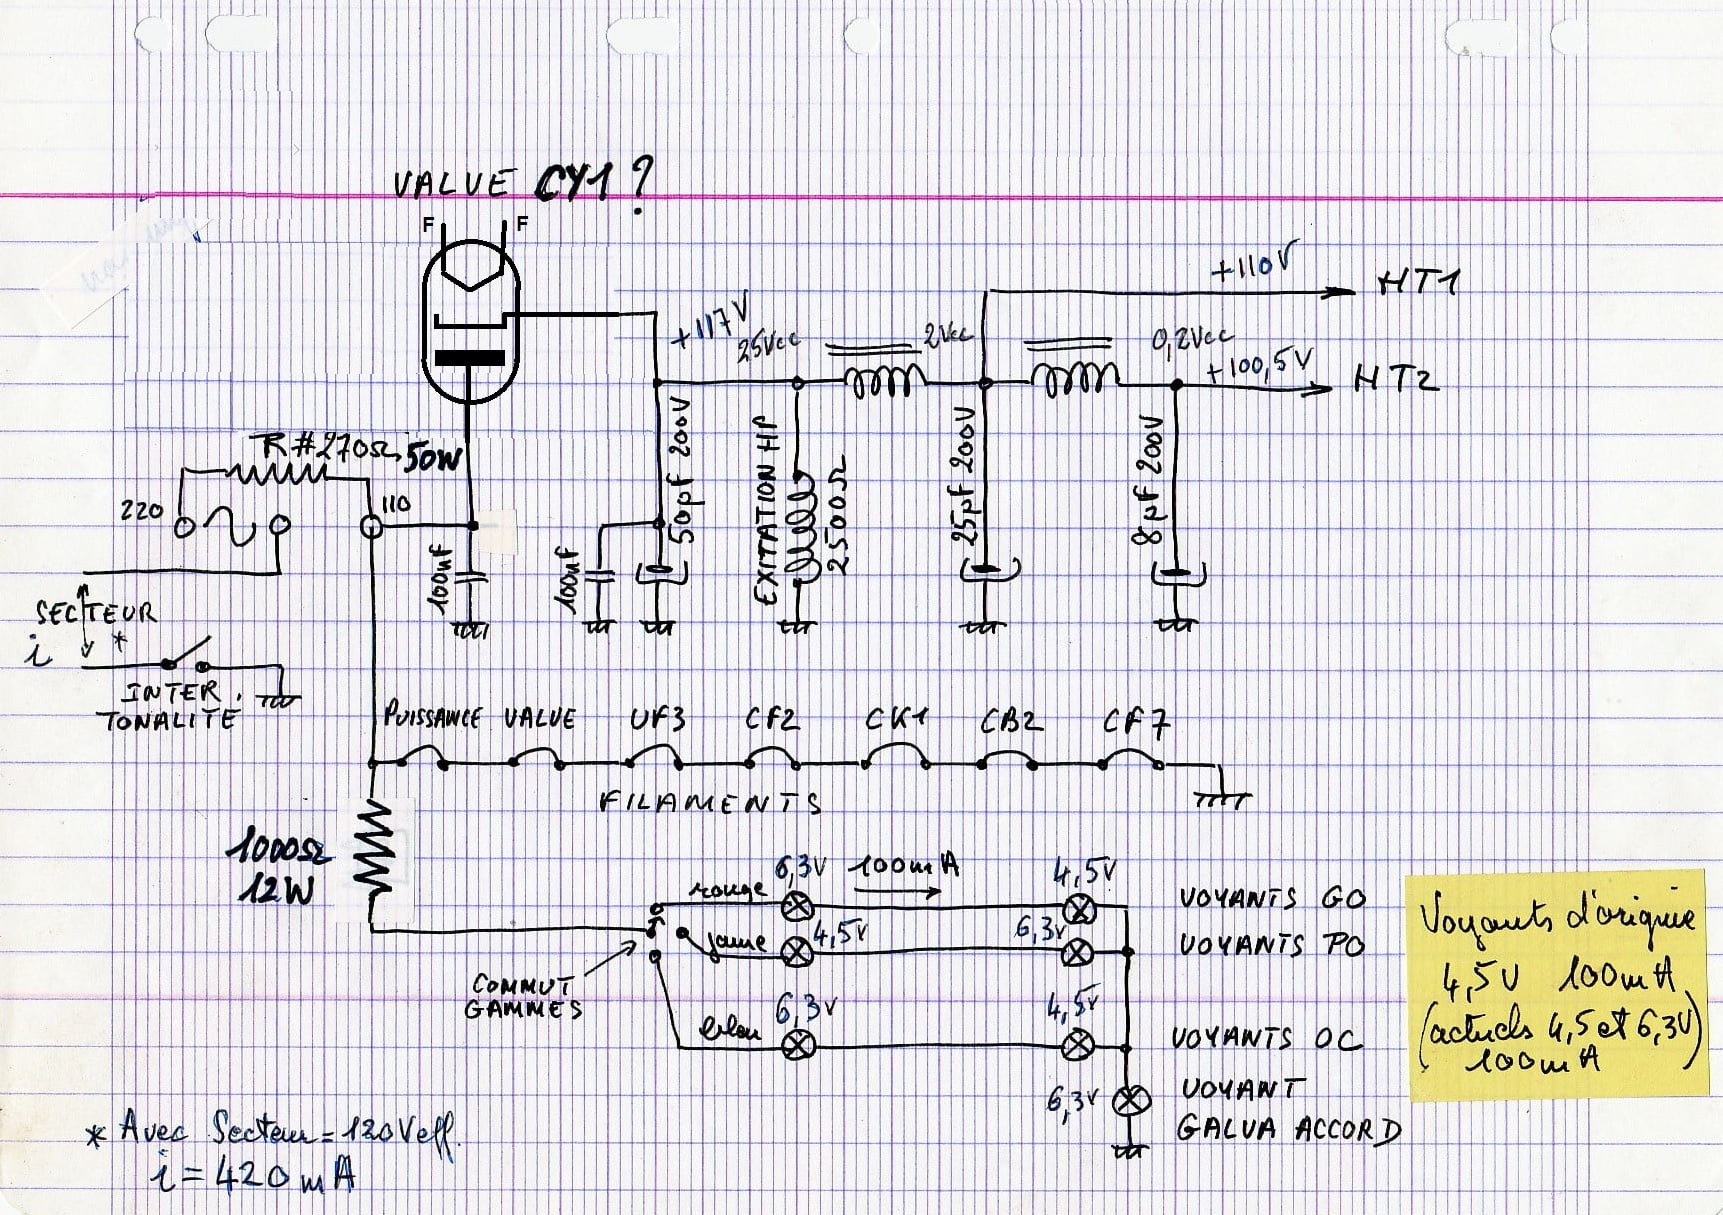 VALVE CY1?
F F
+110V
HT1
+117V
25Vcc
2Vcc
0,2Vcc
+100,5V
HT2
R#270Ω 50W
220
110
100nF
100nF
50µF 200V
EXITATION HP
2500Ω
25µF 200V
8µF 200V
SECTEUR
i *
INTER.
TONALITE
PUISSANCE VALVE UF3 CF2 CK1 CB2 CF7
FILAMENTS
1000Ω
12W
rouge 6,3V 100mA 4,5V VOYANTS GO
jaune 4,5V 6,3V VOYANTS PO
COMMUT
GAMMES
6,3V 4,5V VOYANTS OC
6,3V VOYANT
GALVA ACCORD
Voyants d'origine
4,5V 100mA
(actuels 4,5 et 6,3V)
100mA
* Avec Secteur = 120Veff.
i = 420mA